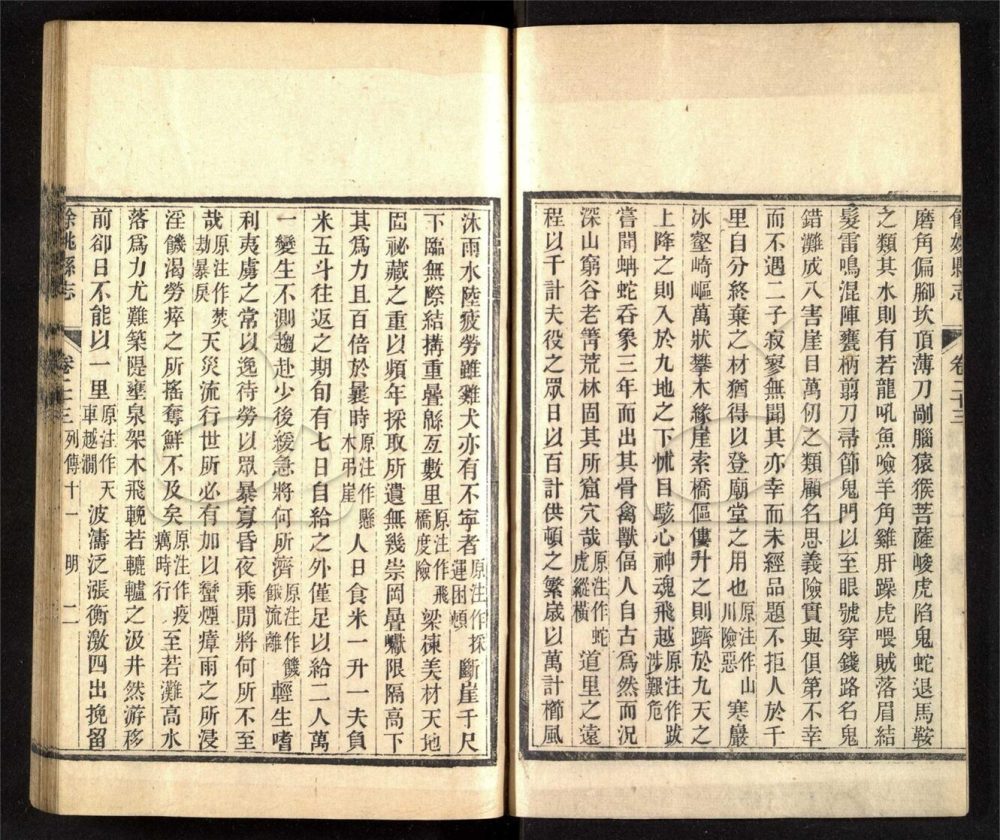 餘姚縣志 卷二十三
磨角偏腳坎頂薄刀剮腦猿猴菩薩峻虎陷鬼蛇退馬鞍
之類其水則有若龍吼魚嗆羊角雞肝躁虎喂賊落眉結
髮雷鳴混陣甕柄翦刀帚節鬼門以至眼號穿錢路名鬼
錯灘成八害崖目萬仞之類顧名思義險實與俱第不幸
而不遇二子寂寥無聞其亦幸而未經品題不拒人於千
里自分終棄之材猶得以登廟堂之用也原注作山川險惡寒巖
冰壑崎嶇萬狀攀木緣崖索橋傴僂升之則躋於九天之
上降之則入於九地之下怵目駭心神魂飛越原注作跋涉艱危
嘗聞蚺蛇吞象三年而出其骨禽獸偪人自古為然而況
深山窮谷老箐荒林固其所窟穴哉原注作蛇虎縱橫道里之遠
程以千計夫役之眾日以百計供頓之繁歲以萬計櫛風
沐雨水陸疲勞雖雞犬亦有不寧者原注作採運困頓斷崖千尺
下臨無際結構重疊緜亙數里原注作飛橋度險梁棟美材天地
固祕藏之重以頻年採取所遺無幾崇岡疊巘限隔高下
其為力且百倍於曩時原注作懸木弔崖人日食米一升一夫負
米五斗往返之期旬有七日自給之外僅足以給二人萬
一變生不測趨赴少後緩急將何所濟原注作饑餓流離輕生嗜
利夷虜之常以逸待勞以眾暴寡昏夜乘閒將何所不至
哉原注作焚劫暴戾天災流行世所必有加以蠻煙瘴雨之所浸
淫饑渴勞瘁之所搖奪鮮不及矣原注作疫癘時行至若灘高水
落為力尤難築隄壅泉架木飛輓若轆轤之汲井然游移
前卻日不能以一里原注作天車越澗波濤泛漲衡激四出挽留
餘姚縣志 卷二十三 列傳十一 明 二